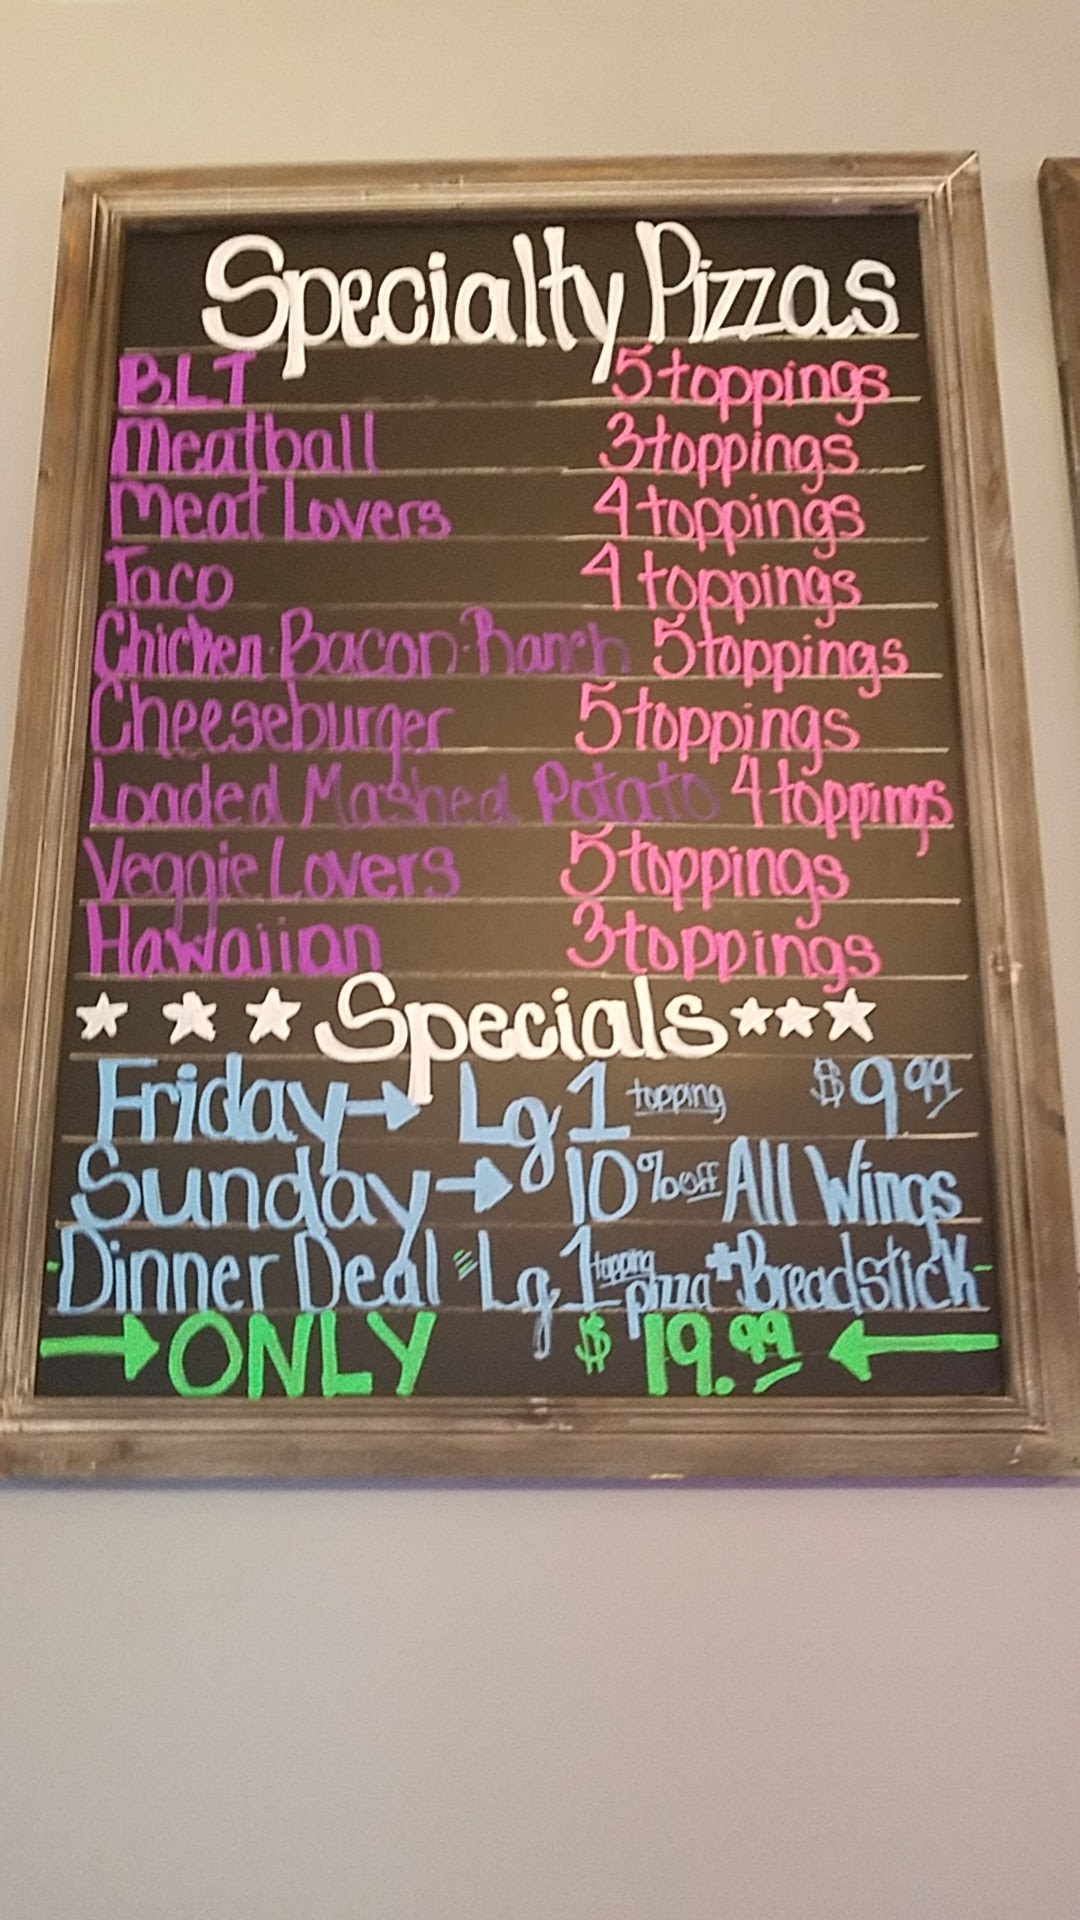 Specialty Pizzas
BLT 5 toppings
Meatball 3 toppings
Meat Lovers 4 toppings
Taco 4 toppings
Chicken-Bacon-Ranch 5 toppings
Cheeseburger 5 toppings
Loaded Mashed Potato 4 toppings
Veggie Lovers 5 toppings
Hawaiian 3 toppings
Specials
Friday → Lg 1 topping $9.99
Sunday → 10% off All Wings
Dinner Deal = Lg 1 topping pizza * Breadstick
→ ONLY $19.99 ←